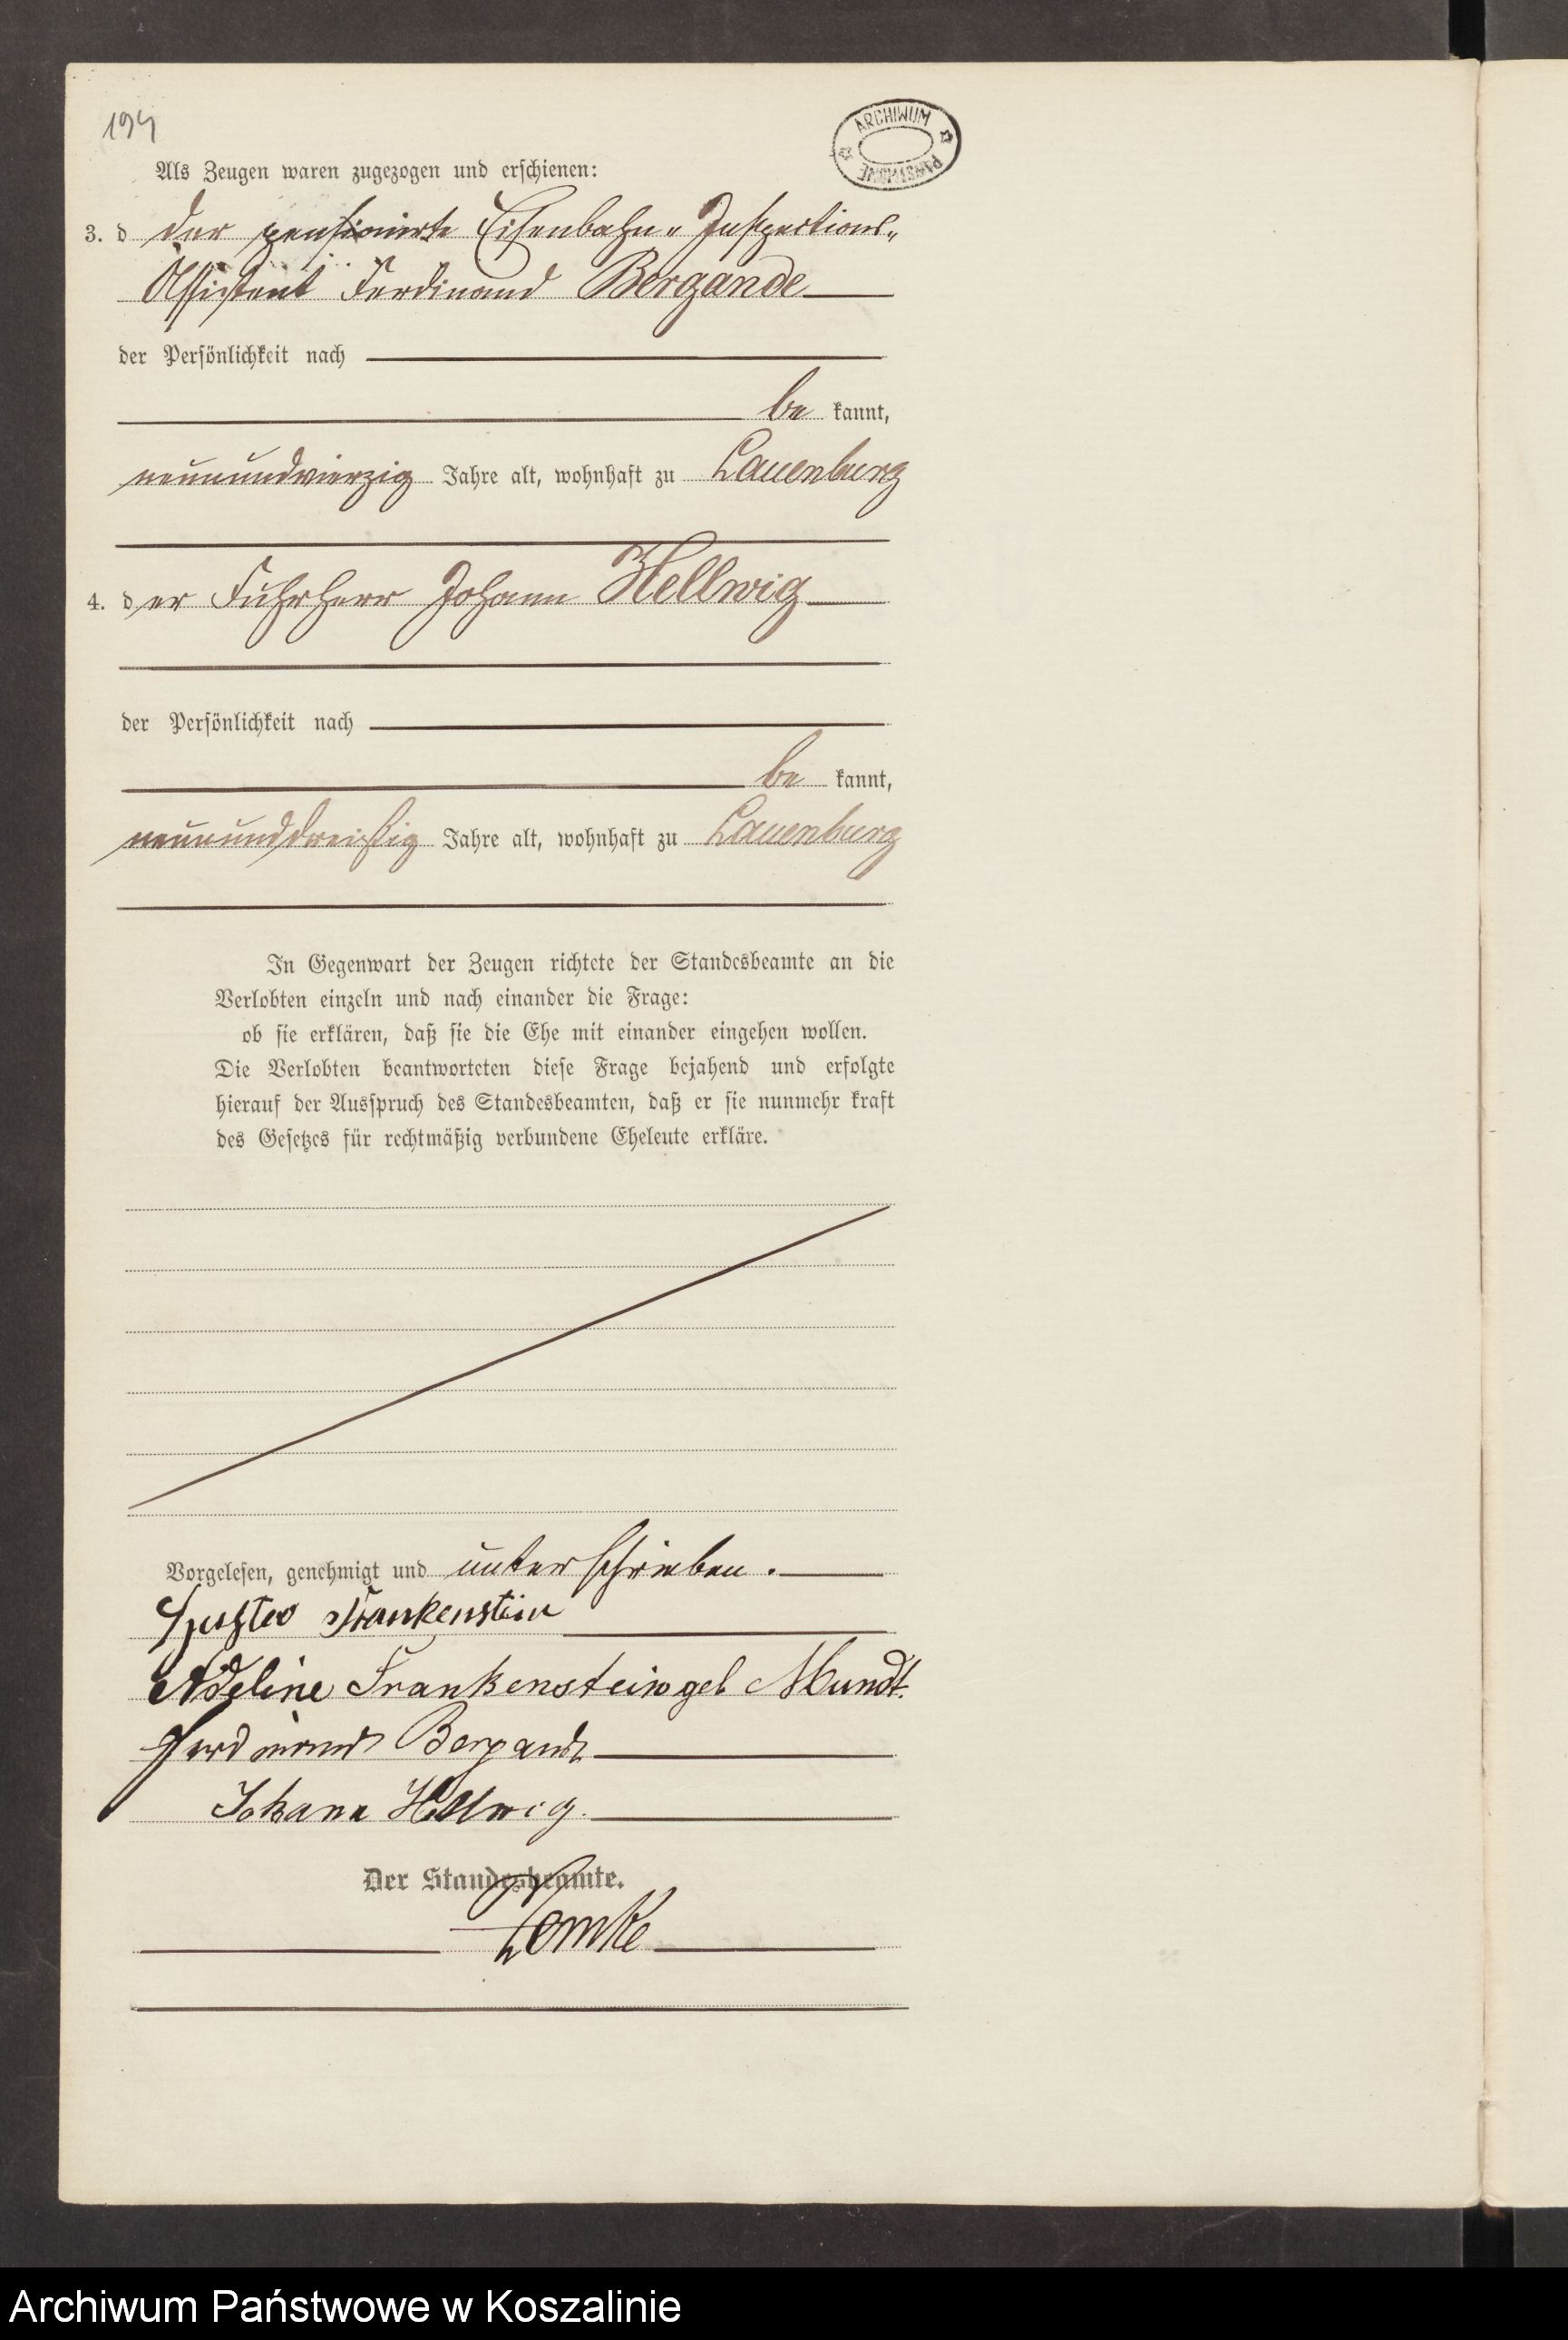 194
ARCHIWUM PAŃSTWOWE
Als Zeugen waren zugezogen und erschienen:
3. d der pensionierte Eisenbahn-Inspections-
Assistent Ferdinand Bergande
der Persönlichkeit nach
be kannt,
neunundvierzig Jahre alt, wohnhaft zu Lauenburg
4. der Fuhrherr Johann Hellwig
der Persönlichkeit nach
be kannt,
neununddreißig Jahre alt, wohnhaft zu Lauenburg
In Gegenwart der Zeugen richtete der Standesbeamte an die
Verlobten einzeln und nach einander die Frage:
ob sie erklären, daß sie die Ehe mit einander eingehen wollen.
Die Verlobten beantworteten diese Frage bejahend und erfolgte
hierauf der Ausspruch des Standesbeamten, daß er sie nunmehr kraft
des Gesetzes für rechtmäßig verbundene Eheleute erkläre.
Vorgelesen, genehmigt und unterschrieben.
Frankenstein
Adeline Frankenstein geb Mundt.
Ferdinand Bergande
Johann Hellwig.
Der Standesbeamte.
Archiwum Państwowe w Koszalinie